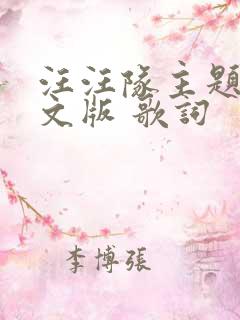 汪汪隊主題
文版 歌詞
李博張